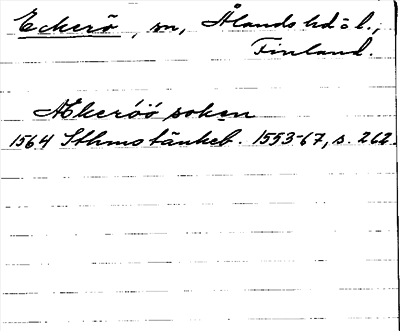 Eckerö, sn, Ålands hd o l.,
Finland.
Ækeröö soken
1564 Sthms tänkeb. 1553-67, s. 262.